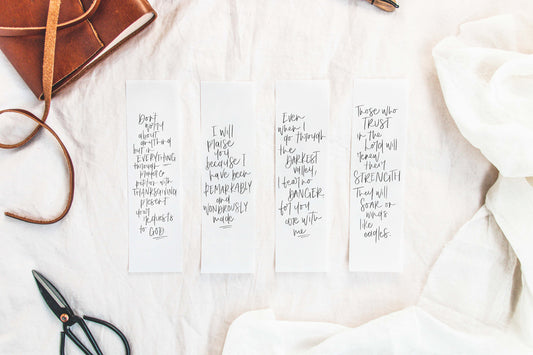 Don't
worry
about
anything
but in
EVERYTHING
through
prayer with
THANKSGIVING
present
your
requests
to
GOD.
I will
praise
you
because I
have been
REMARKABLY
and
WONDROUSLY
made
Even
when I
go through
the
DARKEST
valley,
I fear no
DANGER
for you
are with
me
Those who
TRUST
in the
Lord will
renew
their
STRENGTH
They will
SOAR on
wings
like
eagles.